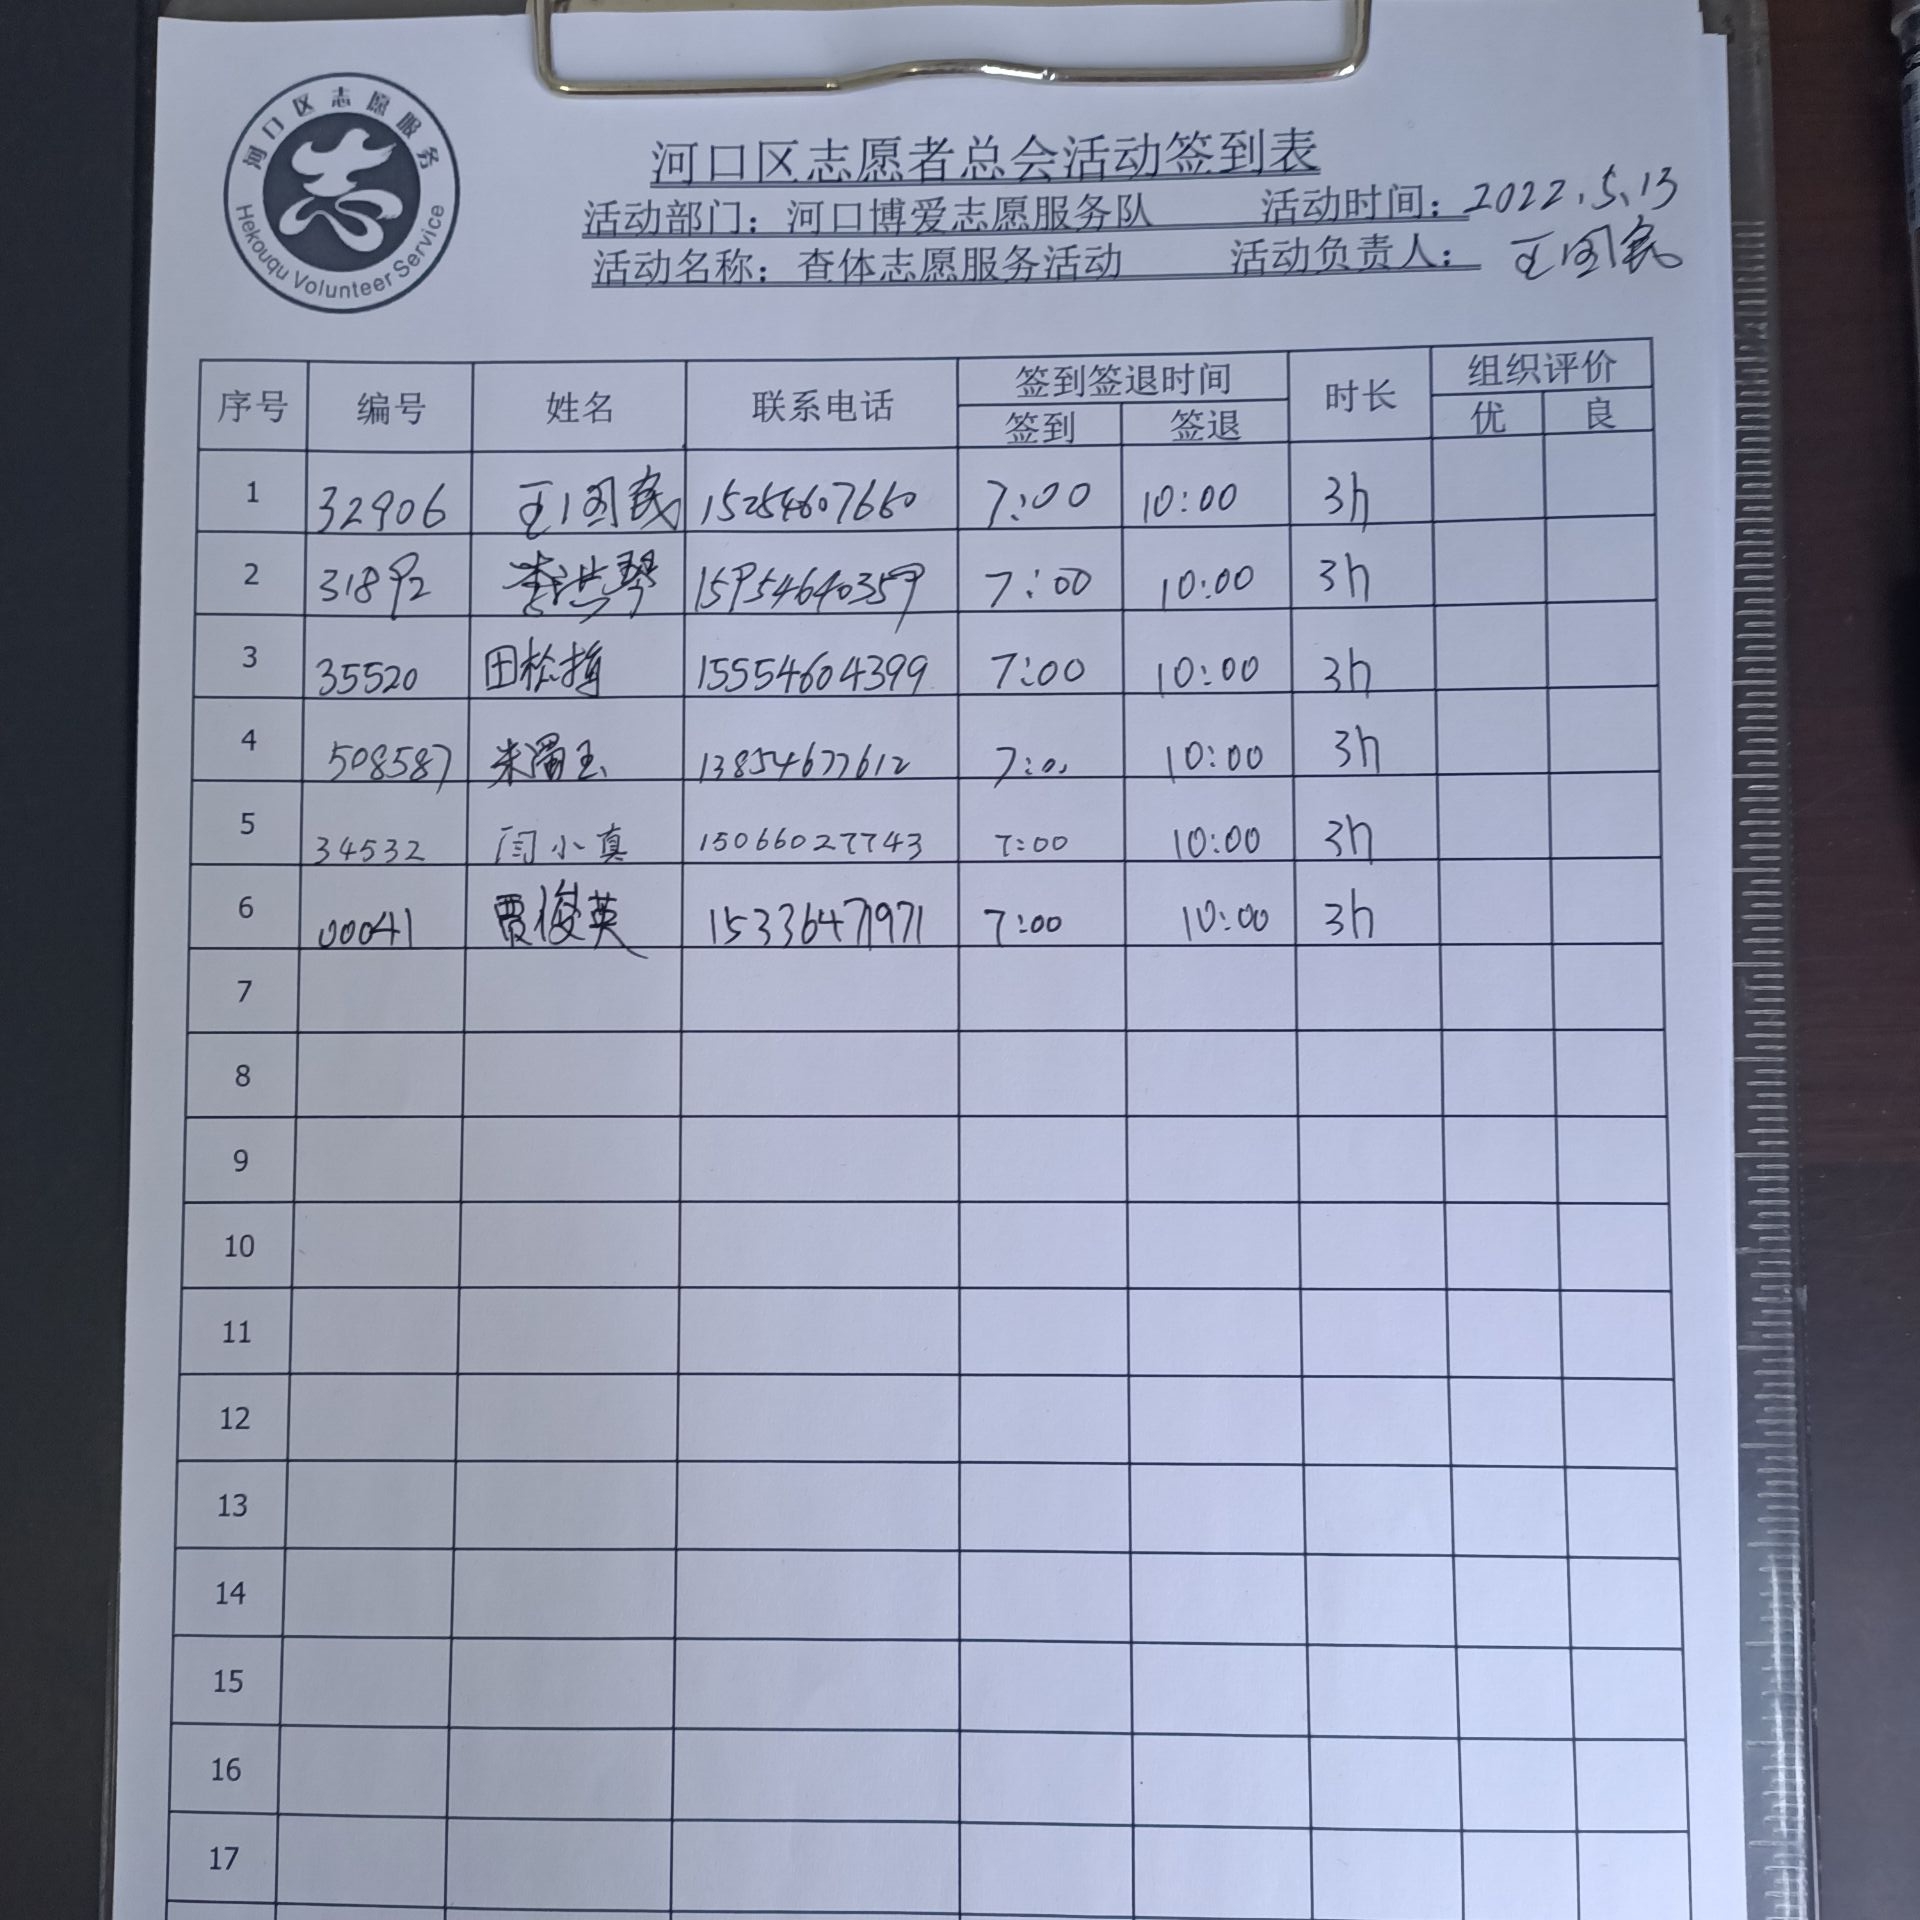 河口区志愿服务
Hekouqu Volunteer Service
河口区志愿者总会活动签到表
活动部门：河口博爱志愿服务队 活动时间：2022.5.13
活动名称：查体志愿服务活动 活动负责人：王国民
序号 编号 姓名 联系电话 签到签退时间 时长 组织评价
签到 签退 优 良
1 32906 王国民 15254607660 7:00 10:00 3h
2 31892 李洪琴 15954640359 7:00 10:00 3h
3 35520 田松 15554604399 7:00 10:00 3h
4 508587 朱 玉 13854677612 7:00 10:00 3h
5 34532 闫小真 15066027743 7:00 10:00 3h
6 00041 贾俊英 15336471971 7:00 10:00 3h
7
8
9
10
11
12
13
14
15
16
17